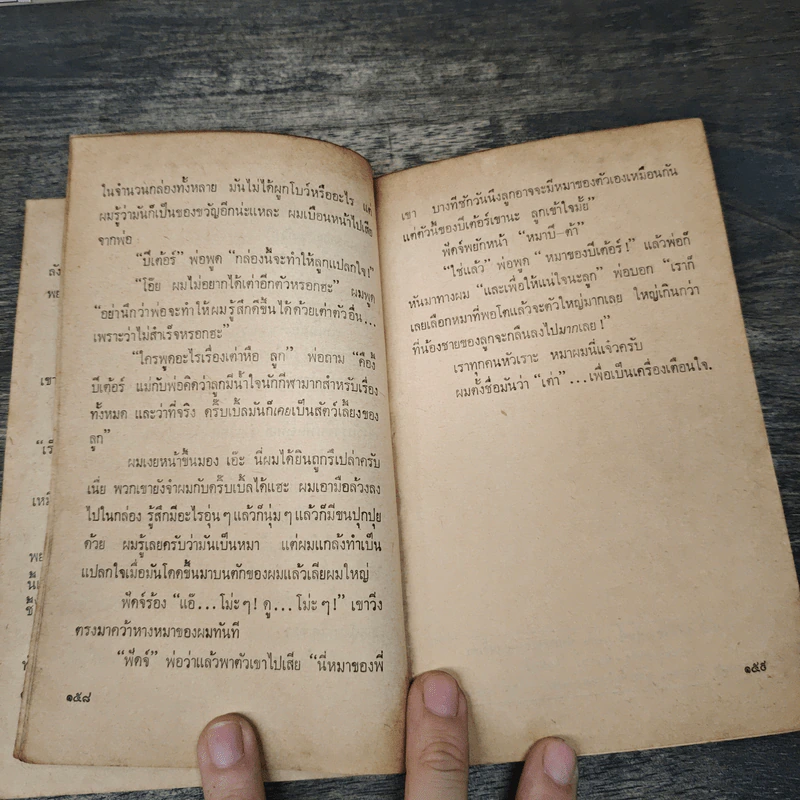 ในจำนวนกล่องทั้งหลาย มันไม่ได้ผูกโบว์หรืออะไร แต่
ผมรู้ว่ามันก็เป็นของขวัญอีกน่ะแหละ ผมเบือนหน้าไปเสีย
จากพ่อ
“ปีเต้อร์” พ่อพูด “กล่องนี้จะทำให้ลูกแปลกใจ!”
“โอ๊ย ผมไม่อยากได้เต่าอีกตัวหรอกฮะ” ผมพูด
“อย่านึกว่าพ่อจะทำให้ผมรู้สึกดีขึ้นได้ด้วยเต่าตัวอื่น...
เพราะว่าไม่สำเร็จหรอกฮะ”
“ใครพูดอะไรเรื่องเต่าหือ ลูก” พ่อถาม “คืองี้
ปีเต้อร์ แม่กับพ่อคิดว่าลูกมีน้ำใจนักกีฬามากสำหรับเรื่อง
ทั้งหมด และว่าที่จริง ดริ๊บเบิ้ลมันก็เคยเป็นสัตว์เลี้ยงของ
ลูก”
ผมเงยหน้าขึ้นมอง เอ๊ะ นี่ผมได้ยินถูกรึเปล่าครับ
เนี่ย พวกเขายังจำผมกับดริ๊บเบิ้ลได้แฮะ ผมเอามือล้วงลง
ไปในกล่อง รู้สึกมีอะไรอุ่นๆ แล้วก็นุ่มๆ แล้วก็มีขนปุกปุย
ด้วย ผมรู้เลยครับว่ามันเป็นหมา แต่ผมแกล้งทำเป็น
แปลกใจเมื่อมันโดดขึ้นมาบนตักของผมแล้วเลียผมใหญ่
ฟัดจ์ร้อง “แอ๊...โม่ะๆ! ดู...โม่ะๆ!” เขาวิ่ง
ตรงมาคว้าหางหมาของผมทันที
“ฟัดจ์” พ่อว่าแล้วพาตัวเขาไปเสีย “นี่หมาของพี่
๑๕๘
เขา บางทีซักวันนึงลูกอาจจะมีหมาของตัวเองเหมือนกัน
แต่ตัวนี้ของปีเต้อร์เขานะ ลูกเข้าใจมั้ย”
ฟัดจ์พยักหน้า “หมาปี-ต้า”
“ใช่แล้ว” พ่อพูด “หมาของปีเต้อร์!” แล้วพ่อก็
หันมาทางผม “และเพื่อให้แน่ใจนะลูก” พ่อบอก “เราก็
เลยเลือกหมาที่พอโตแล้วจะตัวใหญ่มากเลย ใหญ่เกินกว่า
ที่น้องชายของลูกจะกลืนลงไปมากเลย!”
เราทุกคนหัวเราะ หมาผมนี่แจ๋วครับ
ผมตั้งชื่อมันว่า “เต่า”...เพื่อเป็นเครื่องเตือนใจ.
๑๕๙
ลั
พ
เขา
“เ
เหมื